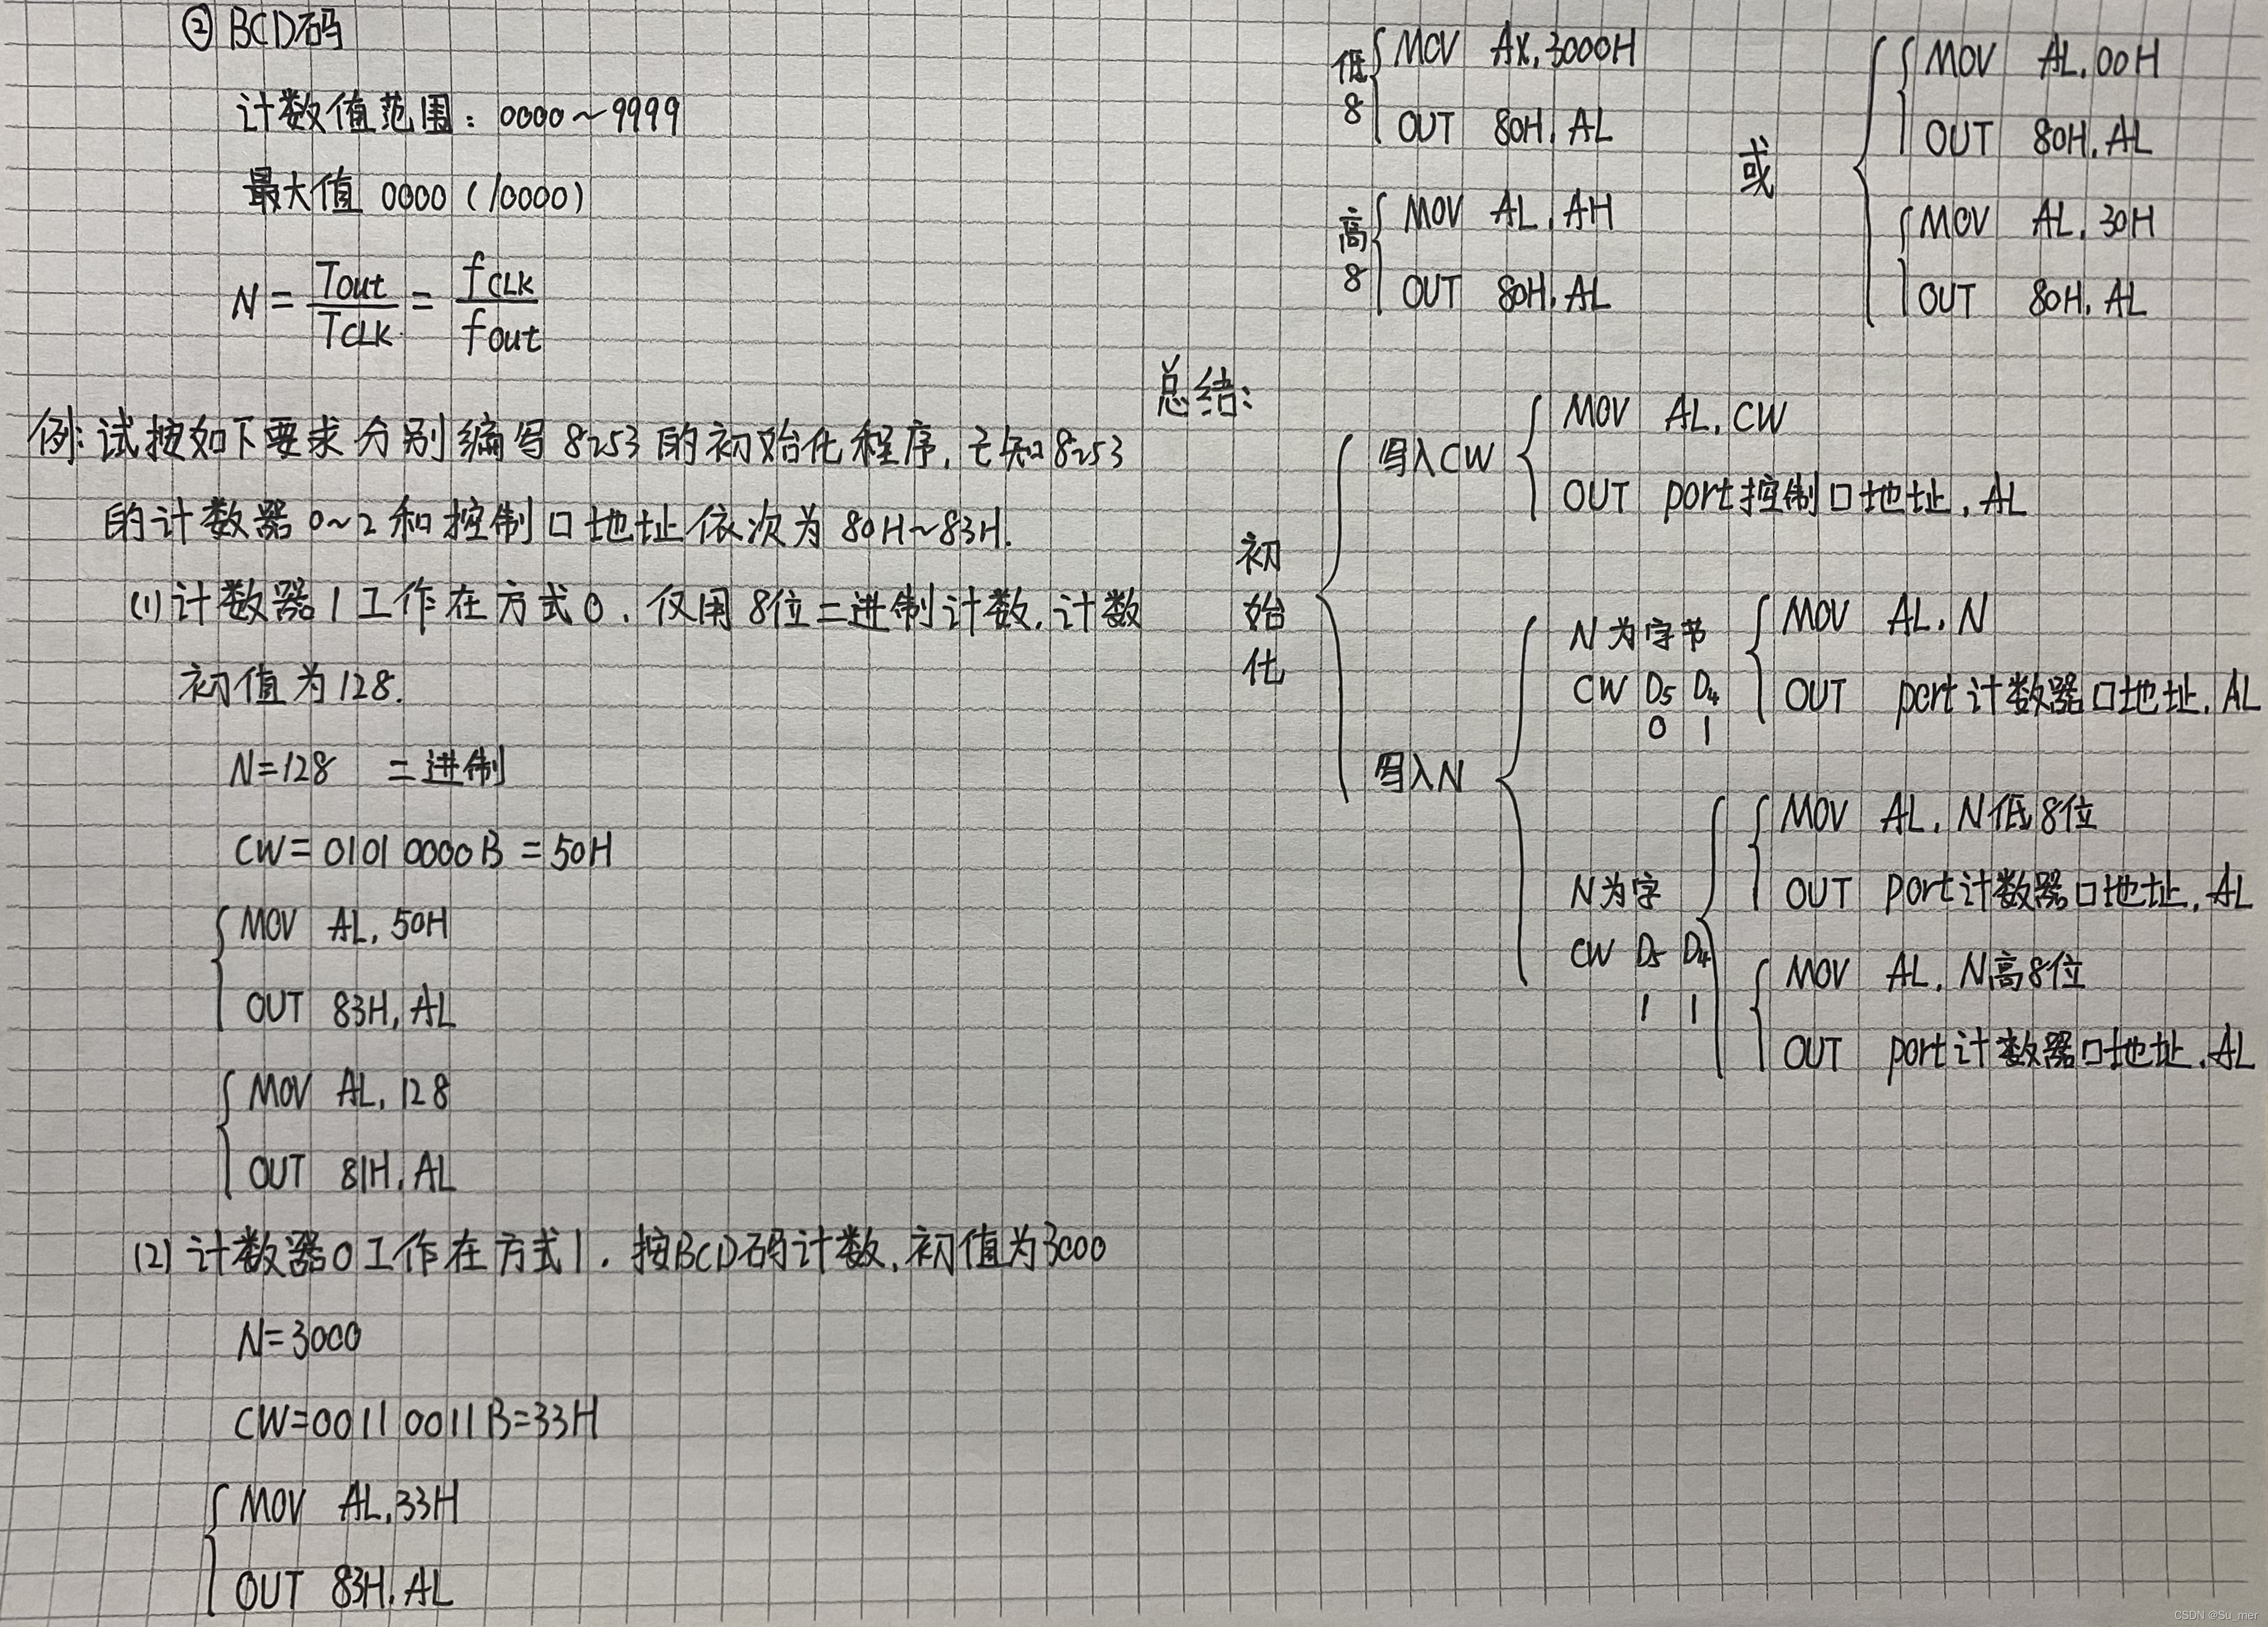 ② BCD码
计数值范围: 0000~9999
最大值 0000 (10000)
N = Tout/TCLK = fCLK/fout
例: 试按如下要求分别编写8253的初始化程序, 已知8253
的计数器0~2和控制口地址依次为80H~83H.
(1) 计数器1工作在方式0, 仅用8位二进制计数, 计数
初值为128.
N=128 二进制
CW=0101 0000B=50H
MOV AL, 50H
OUT 83H, AL
MOV AL, 128
OUT 81H, AL
(2) 计数器0工作在方式1, 按BCD码计数, 初值为3000
N=3000
CW=0011 0011B=33H
MOV AL, 33H
OUT 83H, AL
低8
MOV AX, 3000H
OUT 80H, AL
高8
MOV AL, AH
OUT 80H, AL
或
MOV AL, 00H
OUT 80H, AL
MOV AL, 30H
OUT 80H, AL
总结:
初始化
写入CW
MOV AL, CW
OUT port控制口地址, AL
写入N
N为字节
CW D5 D4
0 1
MOV AL, N
OUT port计数器口地址, AL
N为字
CW D5 D4
1 1
MOV AL, N低8位
OUT port计数器口地址, AL
MOV AL, N高8位
OUT port计数器口地址, AL
CSDN @Su_mer